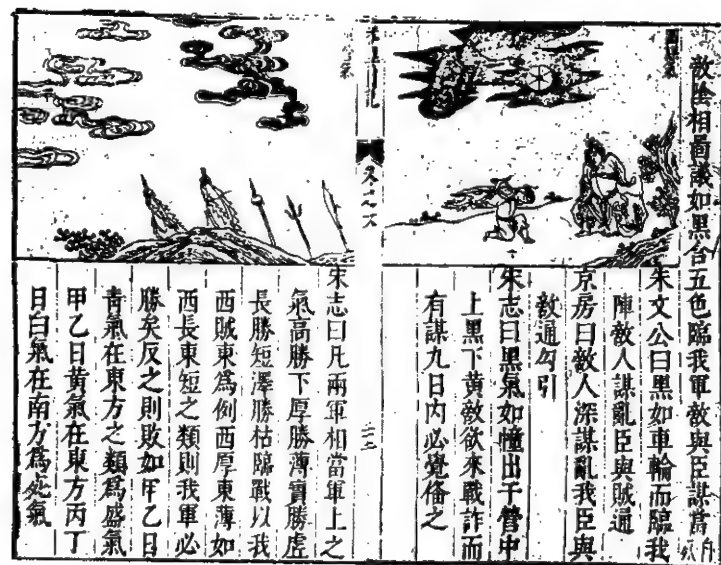 敵陰相啚議如黑合五色臨我軍敵與臣謀
朱文公曰黑如車輪而臨我
陣敵人謀亂臣與賊通
京房曰敵人深謀亂我臣與
敵通勾引
宋志曰黑氣如幢出于營中
上黑下黃敵欲來戰詐而
有謀九日内必覺俻之
宋志曰凡兩軍相當軍上之
氣高勝下厚勝薄實勝虛
長勝短澤勝枯臨戰以我
西賊東爲例西厚東薄如
西長東短之類則我軍必
勝矣反之則敗如甲乙日
青氣在東方之類爲盛氣
甲乙日黃氣在東方丙丁
日白氣在南方爲死氣